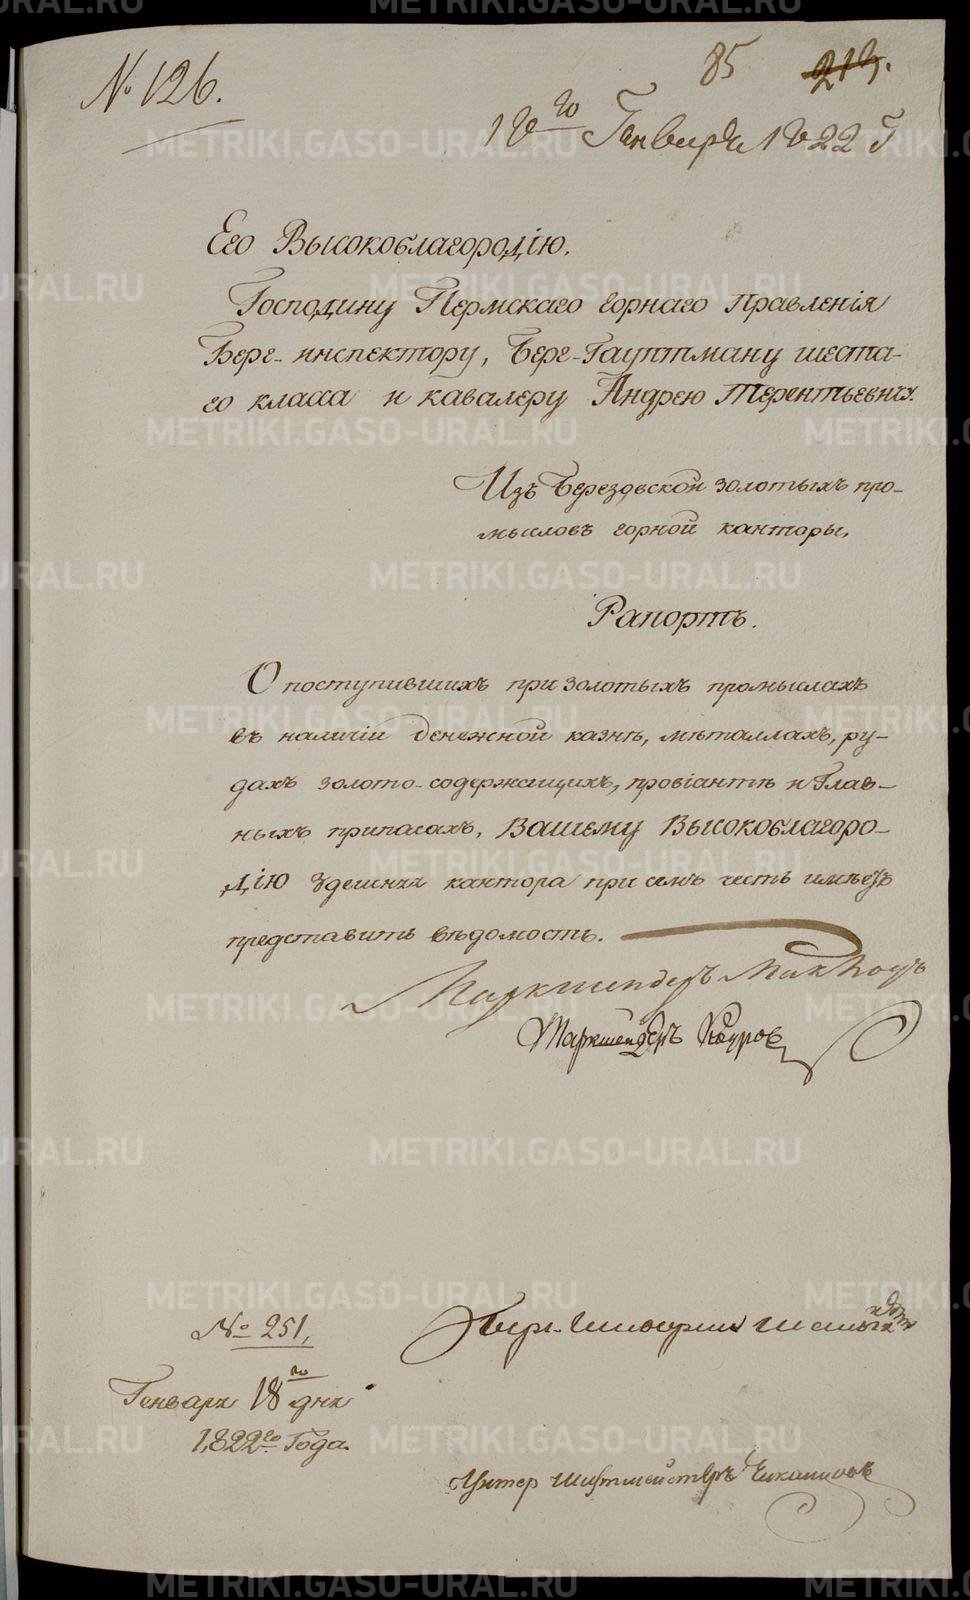 № 126.
85 213.
18го Генваря 1822 г
Его Высокоблагородію.
Господину Пермскаго горнаго Правленія
Берг-инспектору, Берг-Гауптману шеста-
го класса и кавалеру Андрею Терентьевичу.
Изъ Березовской золотыхъ про-
мысловъ горной канторы.
Рапортъ.
О поступившихъ при золотыхъ промыслахъ
въ наличіи денежной казнѣ, мѣталлахъ, ру-
дахъ золото-содержащихъ, провіантѣ и Глав-
ныхъ припасахъ, Вашему Высокоблагоро-
дію здешняя кантора при семъ честь имѣетъ
представить вѣдомость.
Маркшейдеръ
Маркшейдеръ
№ 251,
Берг-
Генваря 18го дня
1822го Года.
Унтер шихтмейстеръ
METRIKI.GASO-URAL.RU